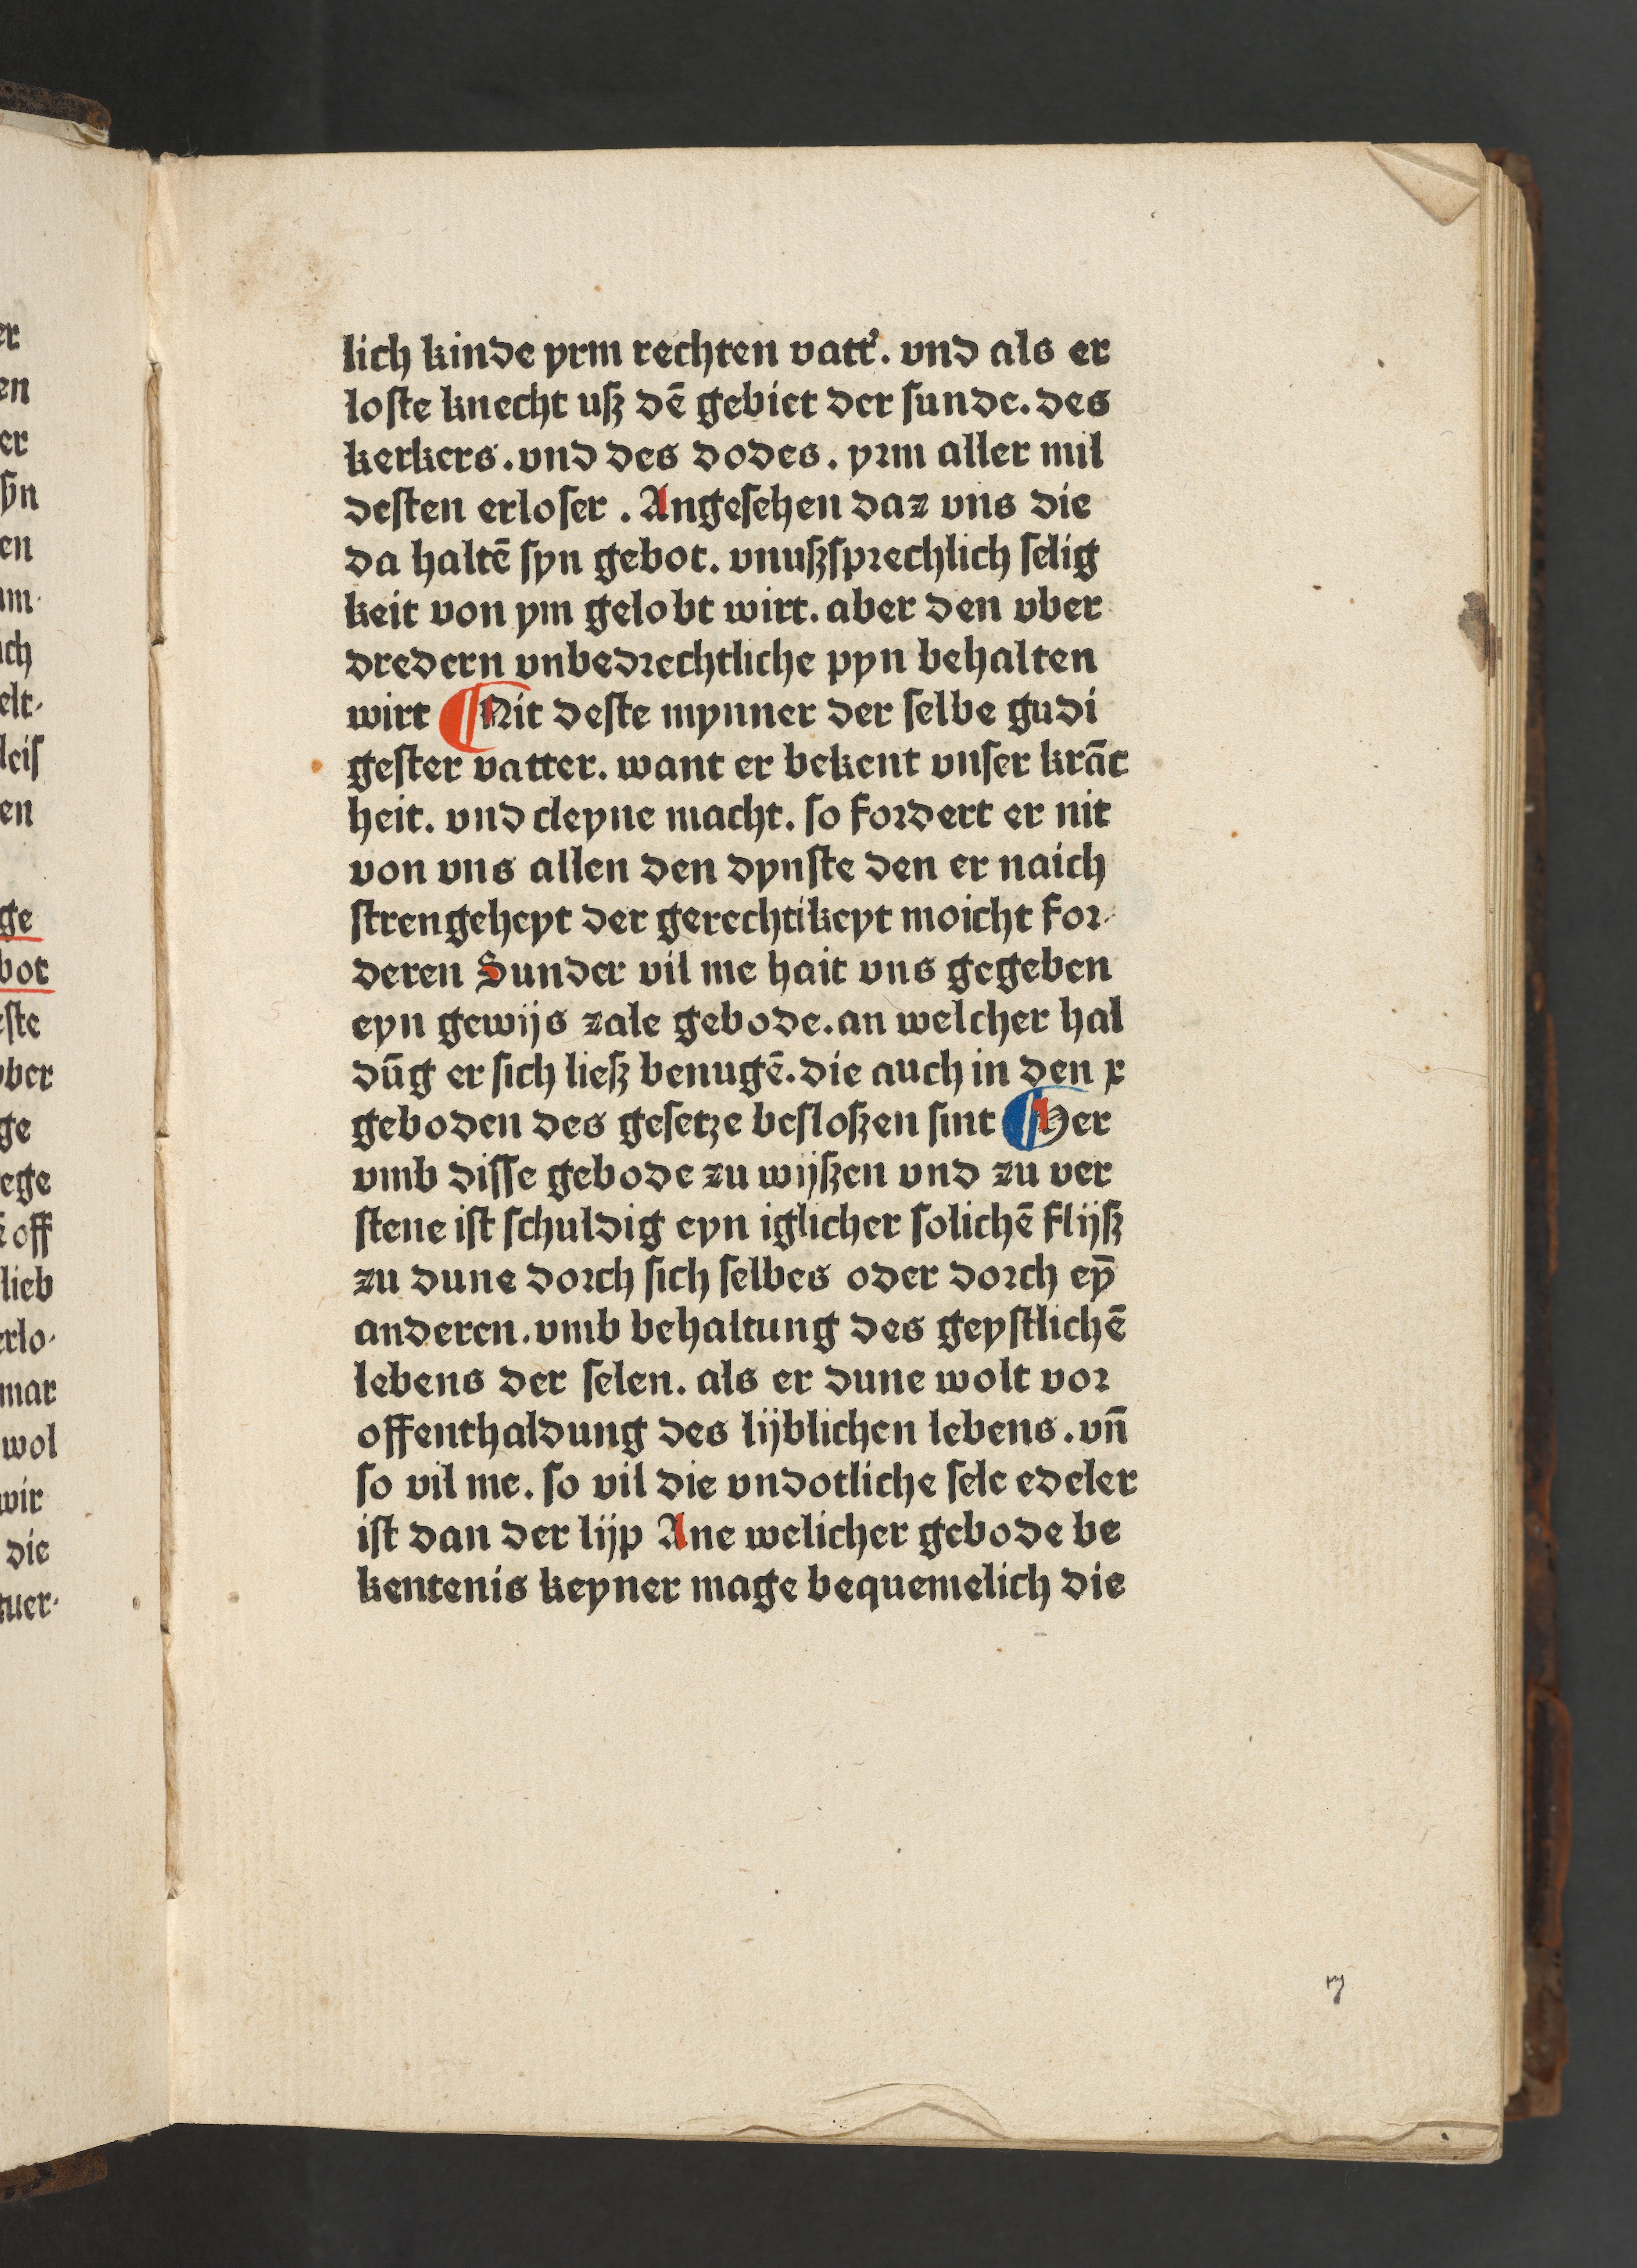 lich kinde yrm rechten vatt᾽. vnd als er
loſte knecht uſz dē gebiet der ſunde. des
kerkers. vnd des dodes. yꝛm aller mil
deſten erloſer. Angeſehen daz vns die
da haltē ſyn gebot. vnuſzſpꝛechlich ſelig
keit von ym gelobt wirt. aber den vber
dredern vnbedꝛechtliche pyn behalten
wirt ¶ Nit deſte mynner der ſelbe gudi
geſter vatter. want er bekent vnſer krāc
heit. vnd cleyne macht. ſo foꝛdert er nit
von vns allen den dynſte den er naich
ſtrengeheyt der gerechtikeyt moicht foꝛ⸗
deren Sunder vil me hait vns gegeben
eyn gewijs zale gebode. an welcher hal
dūg er ſich lieſz benugē. die auch in den x
geboden des geſetze beſloſzen ſint ¶ Her
vmb diſſe gebode zu wijſzen vnd zu ver
ſtene iſt ſchuldig eyn iglicher ſolichē flijſz
zu dune doꝛch ſich ſelbes oder doꝛch ey̅
anderen. vmb behaltung des geyſtlichē
lebens der ſelen. als er dune wolt voꝛ
offenthaldung des lijblichen lebens. vn̅
ſo vil me. ſo vil die vndotliche ſele edeler
iſt dan der lijp Ane welicher gebode be
kentenis keyner mage bequemelich die
7